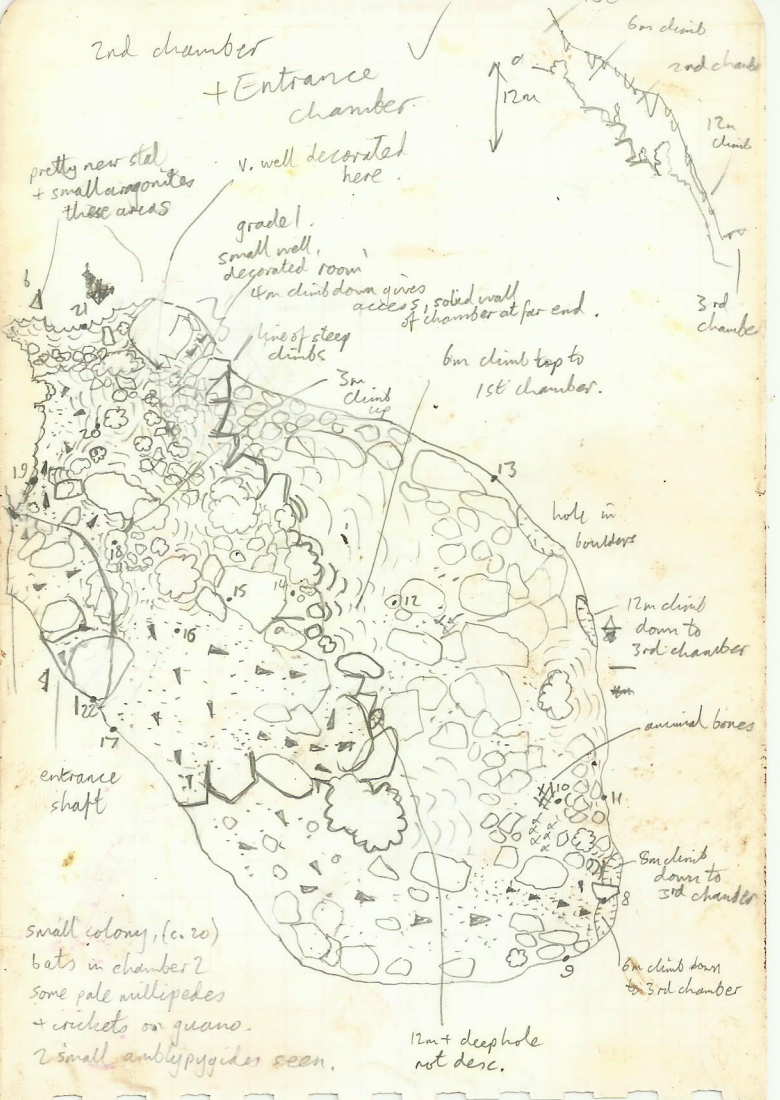 2nd chamber
+ Entrance
chamber.
6m climb
2nd chamb
12m
12m
climb
3rd
chamber
pretty new stal
+ small aragonites
these areas
v. well decorated
here.
grade 1.
small well,
decorated room
4m climb down gives
access, solid wall
of chamber at far end.
line of steep
climbs
3m
climb
up
6m climb top to
1st chamber.
6
21
20
19
18
13
hole in
boulders
15
14
12
16
12m climb
down to
3rd chamber
animal bones
22
17
entrance
shaft
10
11
8m climb
down to
3rd chamber
8
9
6m climb down
to 3rd chamber
small colony, (c. 20)
bats in chamber 2
some pale millipedes
+ crickets on guano.
2 small amblypygides seen.
12m + deep hole
not desc.